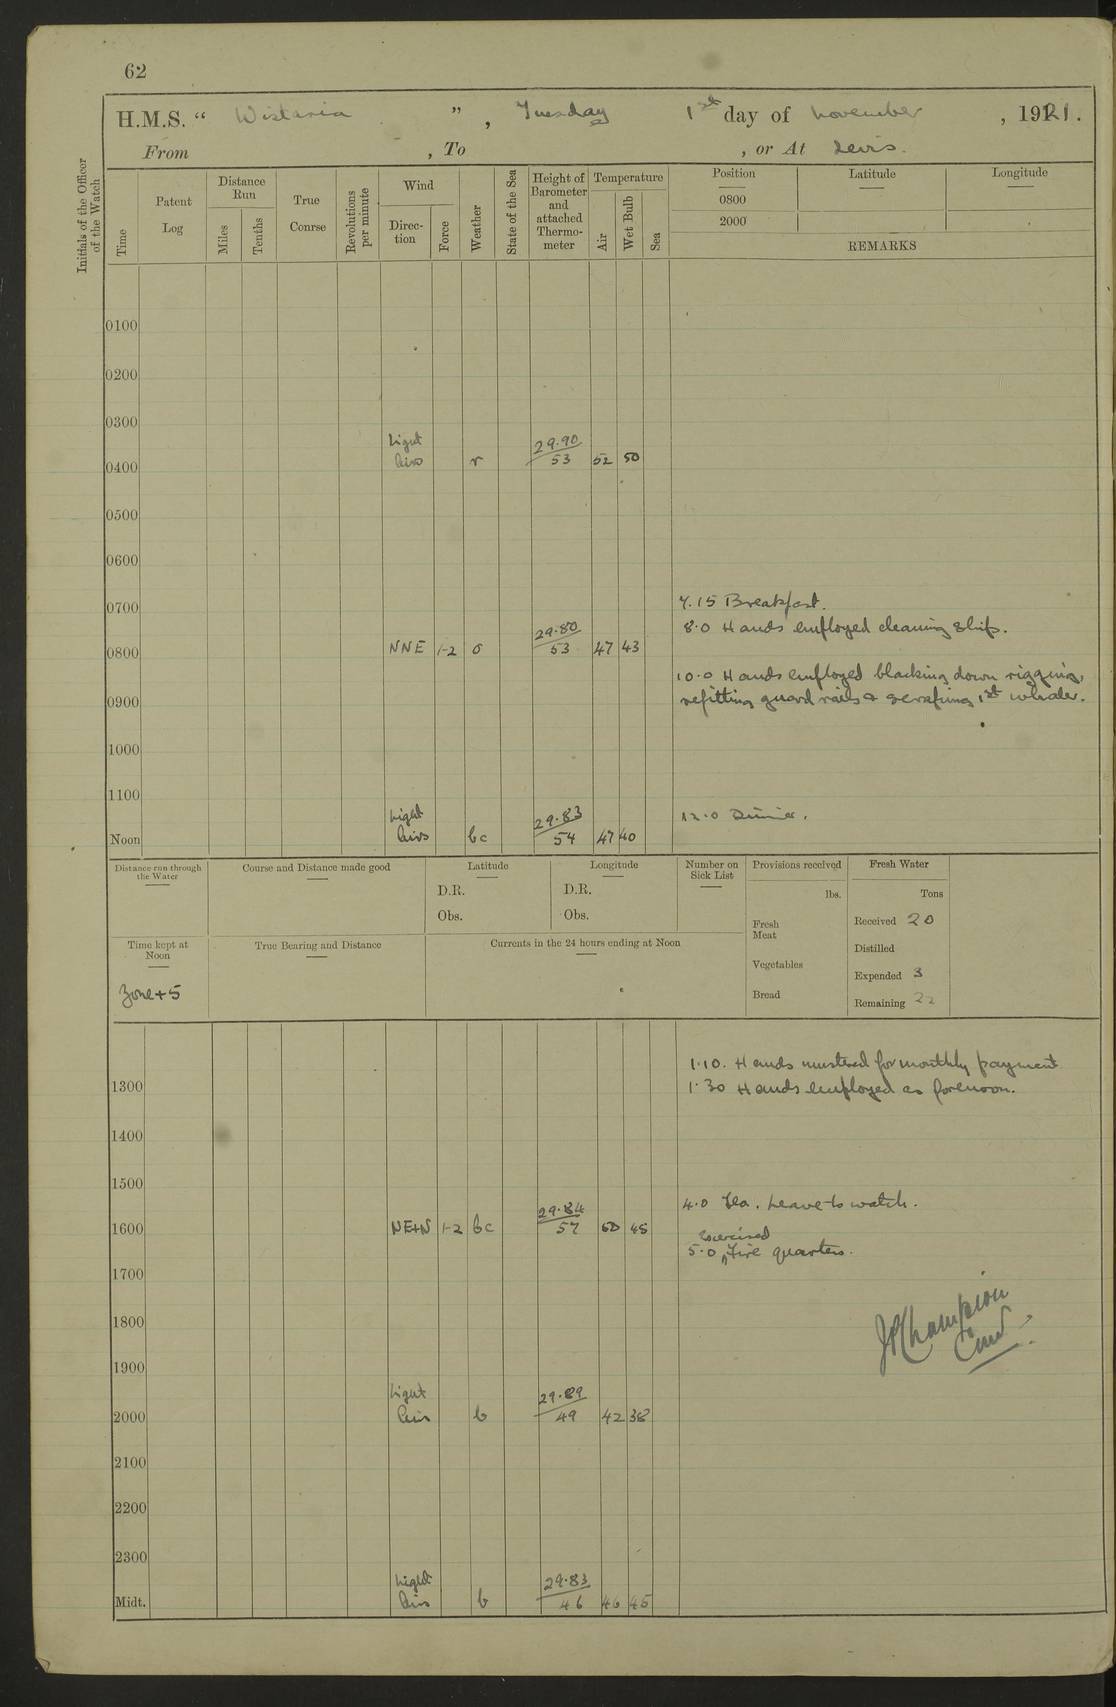 62
H.M.S. “ Wistaria ” , Tuesday 1st day of November , 1921.
From , To , or At Levis.
Initials of the Officer
of the Watch
Time
Patent
Log
Distance
Run
Miles
Tenths
True
Conrse
Revolutions
per minute
Wind
Direc-
tion
Force
Weather
State of the Sea
Height of
Barometer
and
attached
Thermo-
meter
Temperature
Air
Wet Bulb
Sea
Position Latitude Longitude
0800
2000
REMARKS
0100
0200
0300
Light 29.90
0400 airs r 53 52 50
0500
0600
0700 7.15 Breakfast.
29.80 8.0 Hands employed cleaning ship.
0800 NNE 1-2 o 53 47 43
10.0 Hands employed blacking down rigging,
0900 refitting guard rails & scraping 1st whaler.
1000
1100
Light 29.83 12.0 Dinner.
Noon airs bc 54 47 40
Distance run through
the Water
Course and Distance made good
Latitude
D.R.
Obs.
Longitude
D.R.
Obs.
Number on
Sick List
Provisions received
lbs.
Fresh
Meat
Vegetables
Bread
Fresh Water
Tons
Received 20
Distilled
Expended 3
Remaining 22
Time kept at
Noon
Zone +5
True Bearing and Distance
Currents in the 24 hours ending at Noon
1.10. Hands mustered for monthly payment
1300 1.30 Hands employed as forenoon.
1400
1500
29.84 4.0 Tea. Leave to watch.
1600 NE+N 1-2 bc 57 50 45
exercised
5.0 ^ Fire quarters.
1700
1800
JPChampion
Cmdr
1900
Light 29.89
2000 airs b 49 42 38
2100
2200
2300
Light 29.83
Midt. airs b 46 46 45